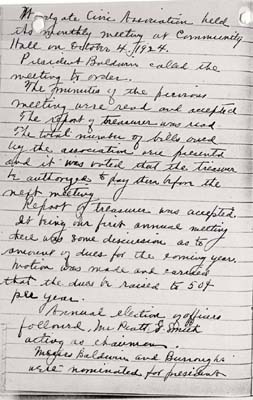 Westgate Civic Association held
its monthly meeting at Community
Hall on October 4, 1924.
President Baldwin called the
meeting to order.
The minutes of the previous
meeting were read and accepted
The report of treasurer was read
The total number of bills owed
by the association were presented
and it was voted that the treasurer
be authorized to pay them before the
next meeting
Report of treasurer was accepted.
It being our first annual meeting
there was some discussion as to
amount of dues for the coming year.
Motion was made and carried
that the dues be raised to 50¢
per year.
Annual election of officers
followed, Mr Pratt & Smith
acting as chairmen.
Messrs Baldwin and Burroughs
were nominated for president